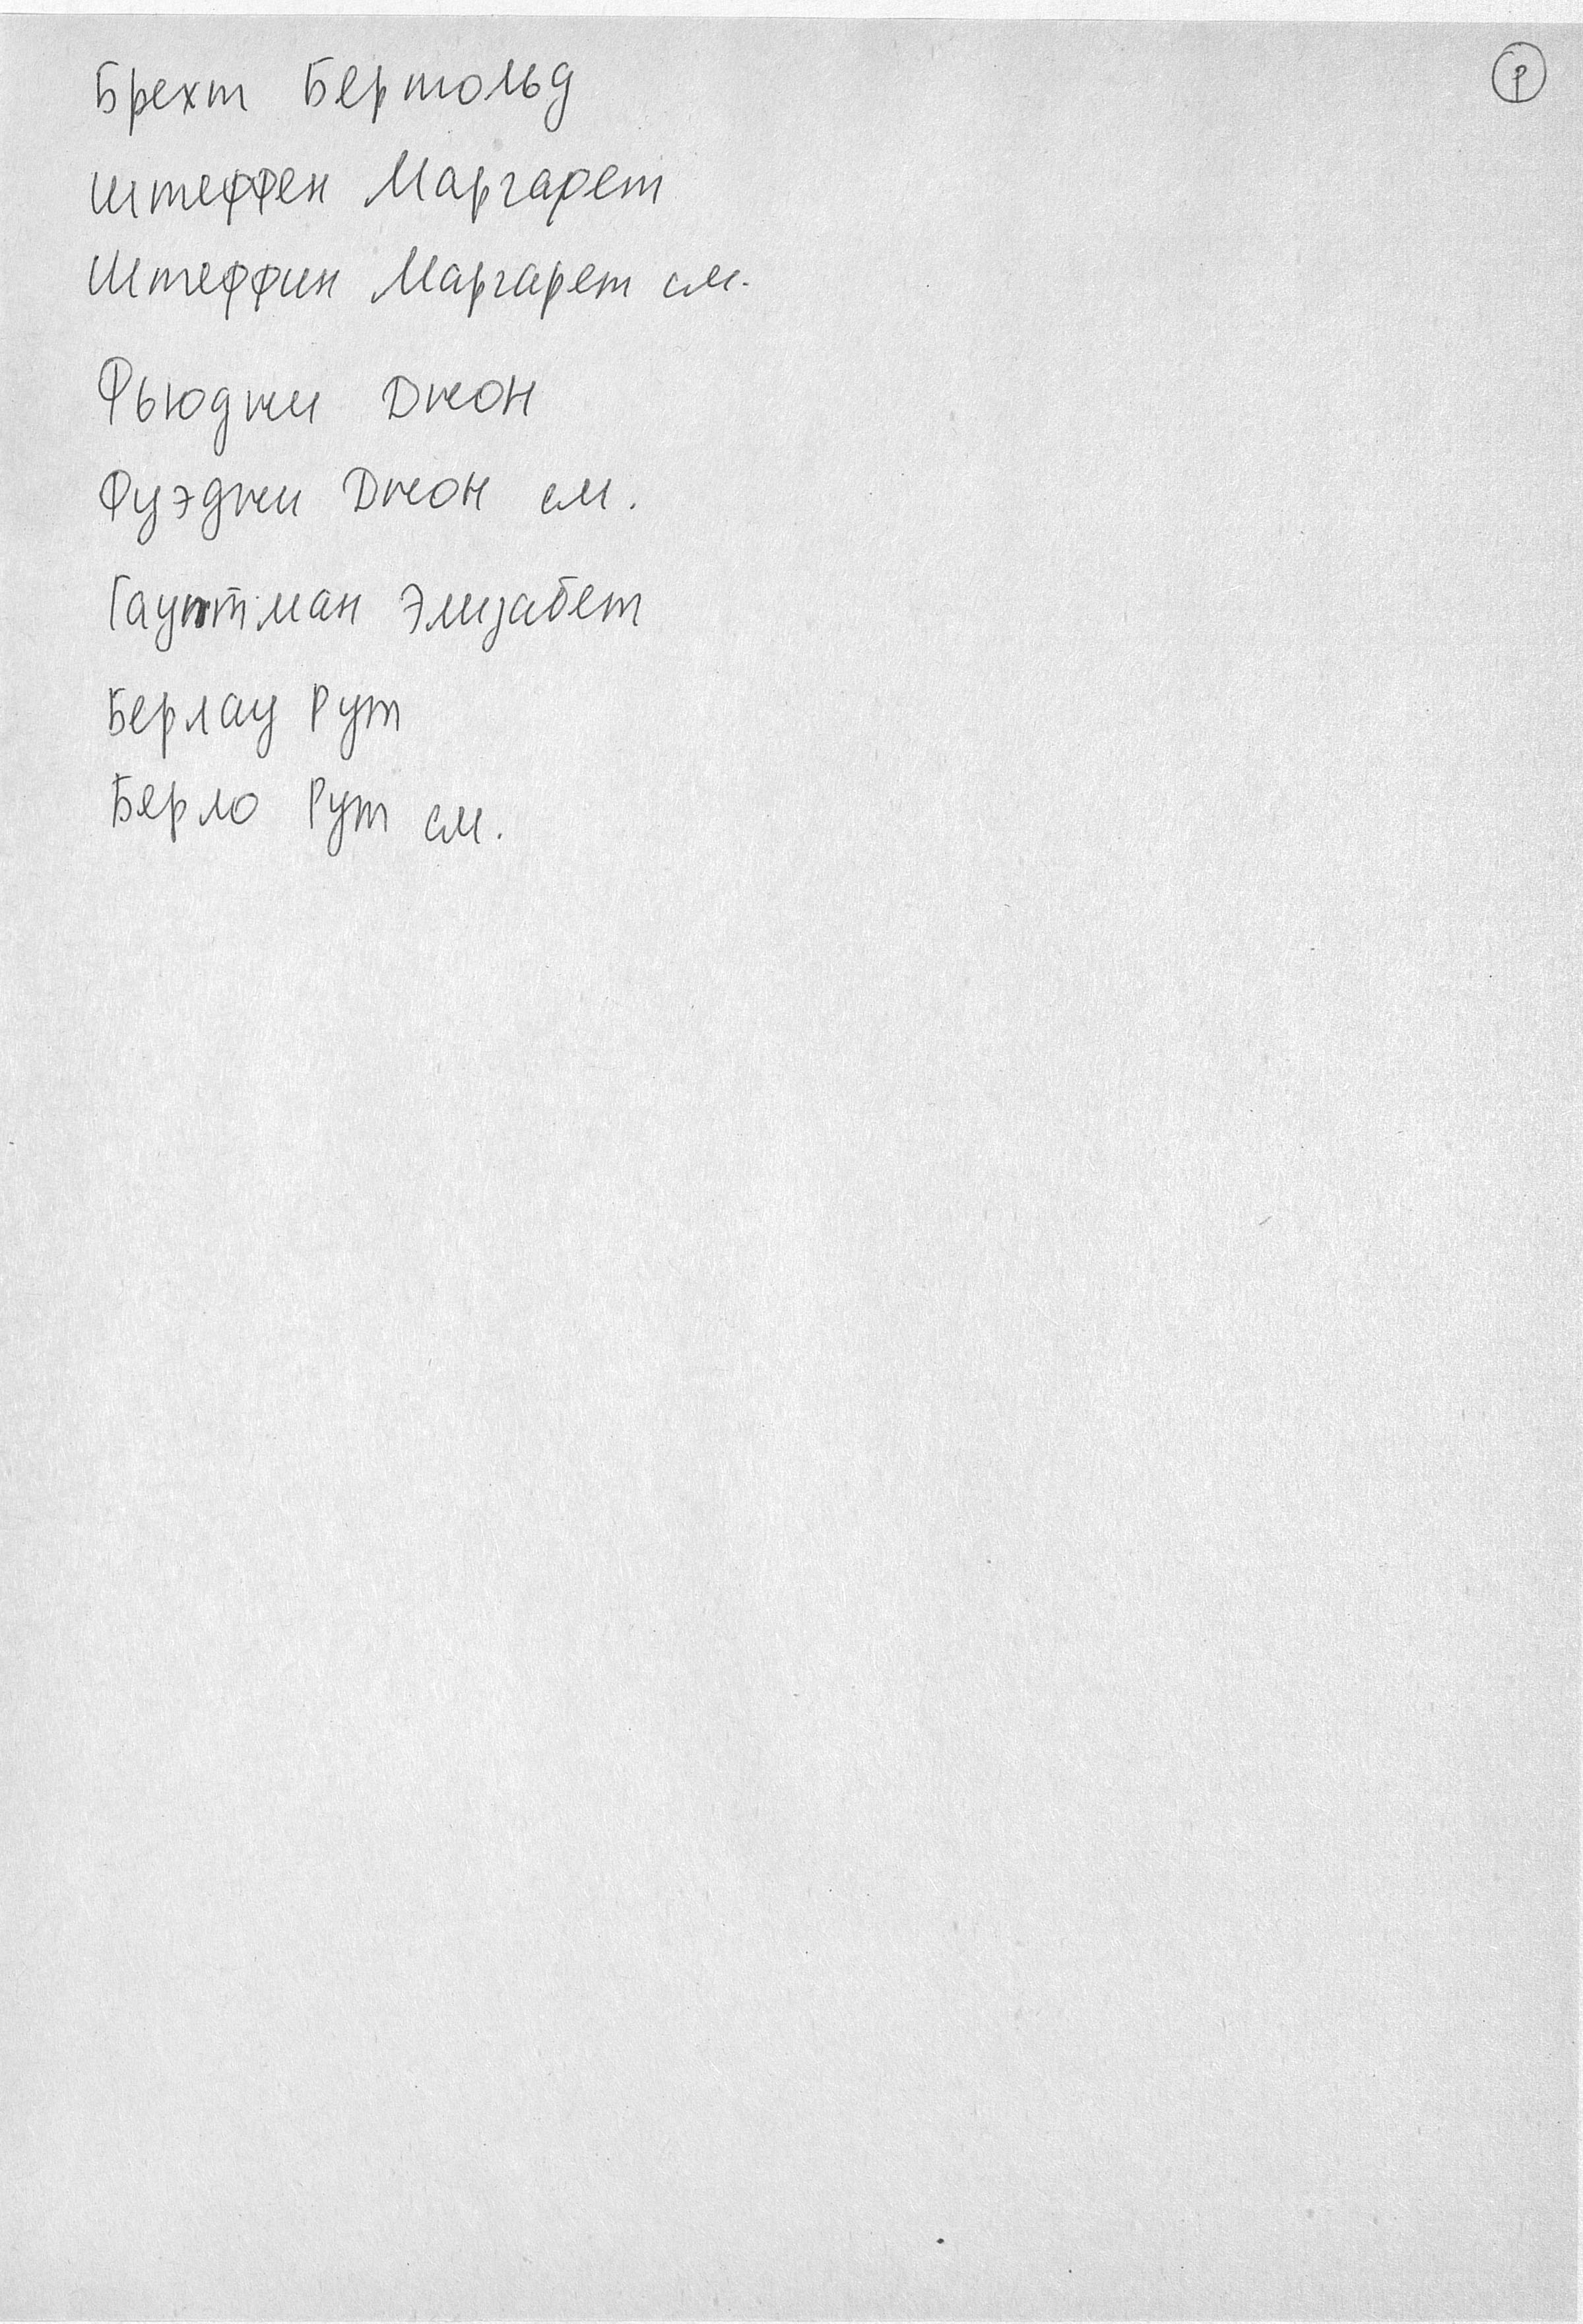 Брехт Бертольд
Штеффен Маргарет
Штеффин Маргарет см.
Фьюджи Джон
Фуэджи Джон см.
Гауптман Элизабет
Берлау Рут
Берло Рут см.